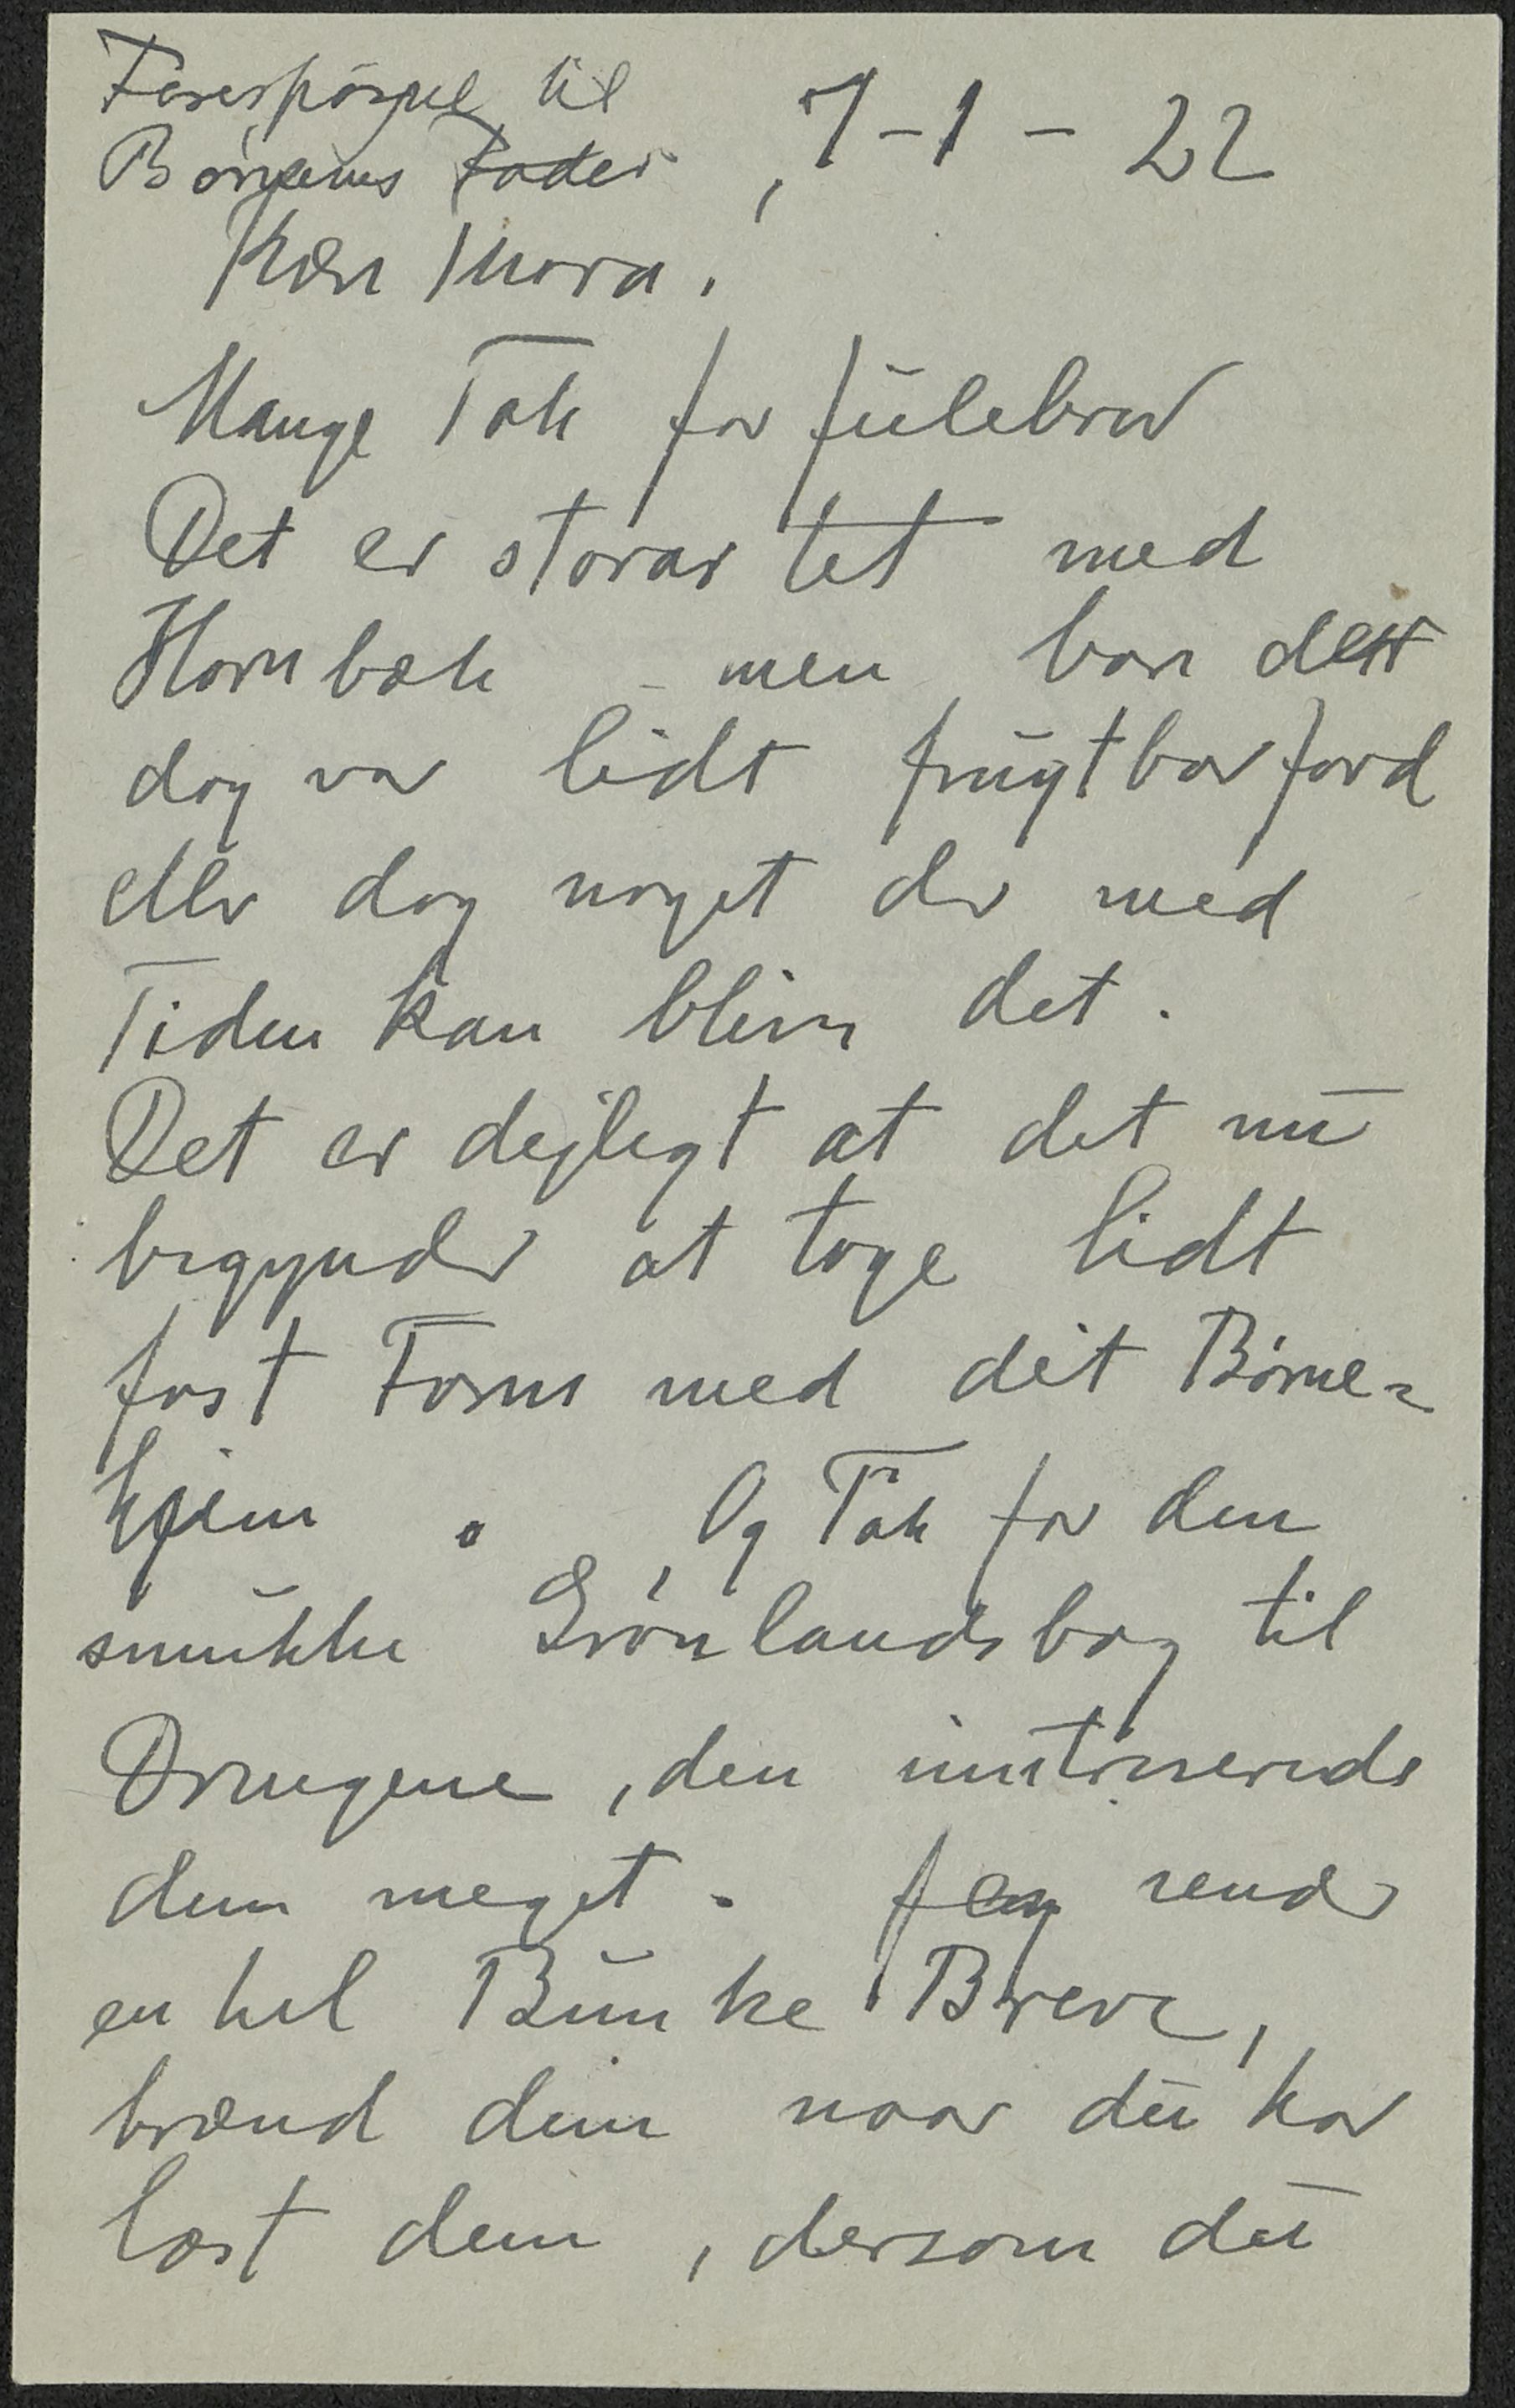 Forespørgsel til
Børgerns Fader , 7-1-22
Kære Thora.
Mange Tak for Julebrev
Det er storartet med
Hornbæk - men bare det
dog var lidt frugtbar Jord
eller dog noget der med
Tiden kan blive det.
Det er dejligt at det nu
begynder at tage lidt
fast Form med dit Børne=
hjem . , Og Tak for den
smukke Grønlandsbog til
Drengene, den intresserede
dem meget. Jeg sender
en hel Bunke Breve,
brænd dem naar du har
læst dem, dersom du